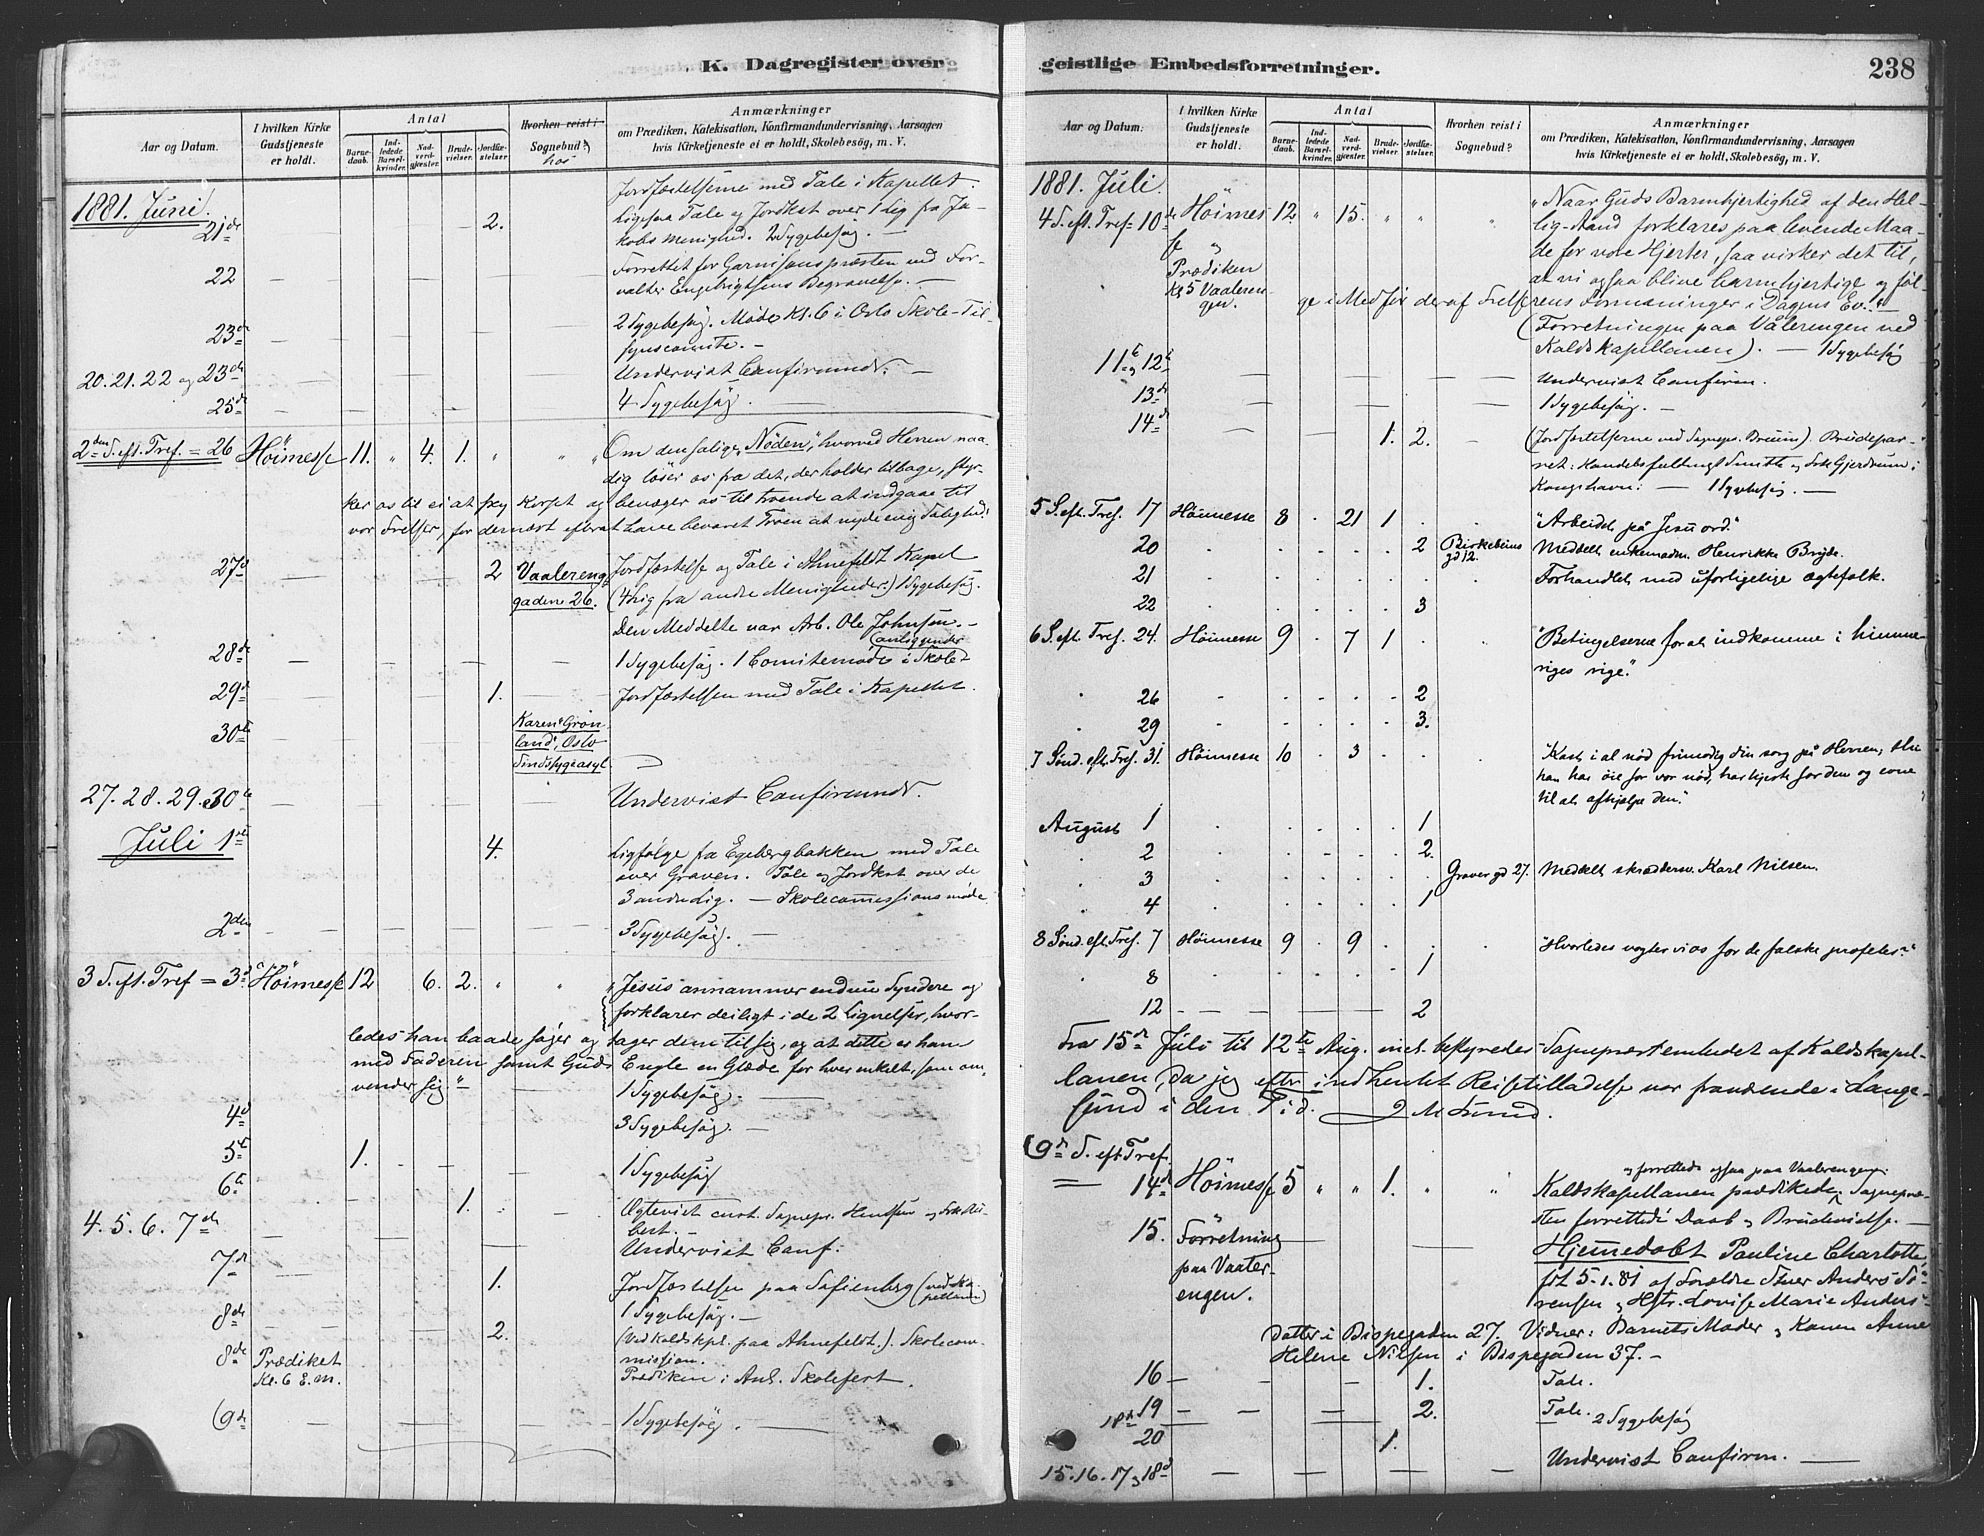 K. Dagregister over
Aar og Datum.
I hvilken Kirke Gudstjeneste er holdt.
Antal
Barnedaab.
Indledede Barselkvinder.
Nadverdgjester.
Brudevielser.
Jordfæstelser
Hvorhen reist i Sognebud?
hos
Anmærkninger
om Prædiken, Katekisation, Konfirmandundervisning, Aarsagen
hvis Kirketjeneste ei er holdt, Skolebesøg, m. V.
1881. Juni.
21de 2. Jordfæstelserne med Tale i Kapellet.
Ligesaa Tale og Jordkast over 1 Lig fra Ja-
kobs menighed. 2 Sygebesøg. —
22 Forrettet for Garnisonspræsten ved For-
valter Engebrigtsens Begravelse. —
23de 2 Sygebesøg. Møde Kl. 6 i Oslo Skole-Til-
synscomite. —
20. 21. 22 og 23de Undervist Confirmnds. —
25de 4 Sygebesøg. —
2den S. eft. Tref. = 26 Höimesse 11. " 4. 1. " " "Om den salige "Nöden", hvorved Herren naa-
dig löser os fra det, der holder tilbage, styr-
ker os til ei at sky Korset og benæger os til troende at indgaae til
vor Frelser, for dernæst efter at have bevaret Troen at nyde evig Salighed."
27de 2 Vaalereng gaden 26. Jordfæstelse og Tale i Ahnefeldt Kapel
(4 Lig fra andre Menigheder.) 1 Sygebesøg.
Den Meddelte var Arb. Ole Johnsön. —
28de 1 Sygebesøg. 1 Comitemøde i Skole
29de 1. Jordfæstelsen med Tale i Kapellet.
30te Karen Grön
land, Oslo
Sindssygeasyl.
27. 28. 29. og 30te Undervist Confirmnds.
Juli 1ste 4. Ligfølge fra Egebergbakken med Tale
over Graven. Tale og Jordkast over de
3 andre Lig. — Skolecommissionsmøde
2den 3 Sygebesøg. —
3 S. eft. Tref = 3de Höimesse 12 6. 2. " " "Jesus annammer endnu Syndere og
forklarer deiligt i de 2 Lignelser, hvor-
ledes han baade søger og tager dem til sig, og at dette er ham
med Faderen samt Guds Engle en Glæde for hver enkelt, som om-
vender sig" 1 Sygebesøg. —
4de 3 Sygebesøg. —
5te 1. 1 Sygebesøg
6te 1. Ægteviet Sagnepr.
4. 5. 6. 7de Undervist Conf.
7de 1. Jordfæstelsen paa Sofienberg (ved Ka-
pellanen)
8de 1 Sygebesøg. —
2. (Ved Kaldskpl. paa Ahnefeldt.) Skolecom-
mission.
8de Prædiket
Kl. 6 E.m. Prædiken i Anl. Skolefest.
(9de 1 Sygebesøg. —
geistlige Embedsforretninger.
238
Aar og Datum.
I hvilken Kirke Gudstjeneste er holdt.
Antal
Barnedaab.
Indledede Barselkvinder.
Nadverdgjester.
Brudevielser.
Jordfæstelser.
Hvorhen reist i Sognebud?
Anmærkninger
om Prædiken, Katekisation, Konfirmandundervisning, Aarsagen
hvis Kirketjeneste ei er holdt, Skolebesög, m. V.
1881. Juli.
4 S. eft. Tref = 10de Höimesse 12. " 15. " " " "Naar Guds Barmhjertighed af den Hel-
lig-Aand forklares paa levende Maa-
de for vore Hjerter, saa virker det til,
Prædiken at vi ogsaa blive barmhjertige og föl-
Kl 5 Vaaleren-
gen. ge i Medför deraf Frelserens Formaninger i Dagens Ev."
(Forretningen paa Vålerengen ved
Kaldskapellanen). — 1 Sygebesøg
11te og 12te Undervist Confirm.
13de 1 Sygebesøg. —
14de 1. 2. (Jordfæstelserne ved Sognepr. Bruun). Brudepar-
ret: Handelsfuldmægt Smith og Frk Gjerdrum i
Kongshavn: — 1 Sygebesøg. —
5 S. eft. Tref. 17 Höimesse 8 . 21 1 . . "Arbeidet på Jesu ord."
20 2 Birkebeins
gd 12. Meddelt enkemadm. Henrikke Bryde.
21 Forhandlet med uforligelige ægtefolk.
22 3
6 S. eft. Tref. 24. Höimesse 9 . 7 1 "Betingelserne for at indkomme i himme-
riges rige."
26 2
29 3.
7 Sönd. eft. Tref. 31. Höimesse 10 . 3 . "Kast i al nød frimodig din sorg på Herren, thi
han har öie for vor nöd, har hjerte for den og evne
til at afhjælpe den."
August 1 1
2 2.
3 Graver gd 27. Meddelt skræddersv. Karl Nilsen.
4 1
8 Sönd. eft. Tref. 7 Höimesse 9 . 9 . "Hvorledes vogter vi os for de falske profeter?"
8 1
12 2
Fra 15de Juli til 12te Aug. incl. bestyredes Sognepræstembedet af Kaldskapel-
lanen, da jeg efter indhentet Reisetilladelse var fraværende i Lange-
sund i den Tid. J M Lund.
(9de S. eft Tref.
= 14de Höimesse 5 " " 1. " " Kaldskapellanen prædikede, og forrettede ogsaa paa Vaalerengen. Sognepræ-
sten forrettede Daab og Brudevielse. —
15. Forretning
paa Vaaler-
engen. Hjemmedöbt Pauline Charlotte
föt 5.1.81 af Forældre Stuer Anders Sö-
rensen og Hstr. Lovise Marie Anders-
datter i Bispegaden 27. Vidner: Barnets Moder og Konen Anne
Helene Nilsen i Bispegaden 37. —
16 — 1. Tale.
18de 19 — 2. Tale. 2 Sygebesøg
20 1.
15. 16. 17 og 18de Undervist Confirm. —